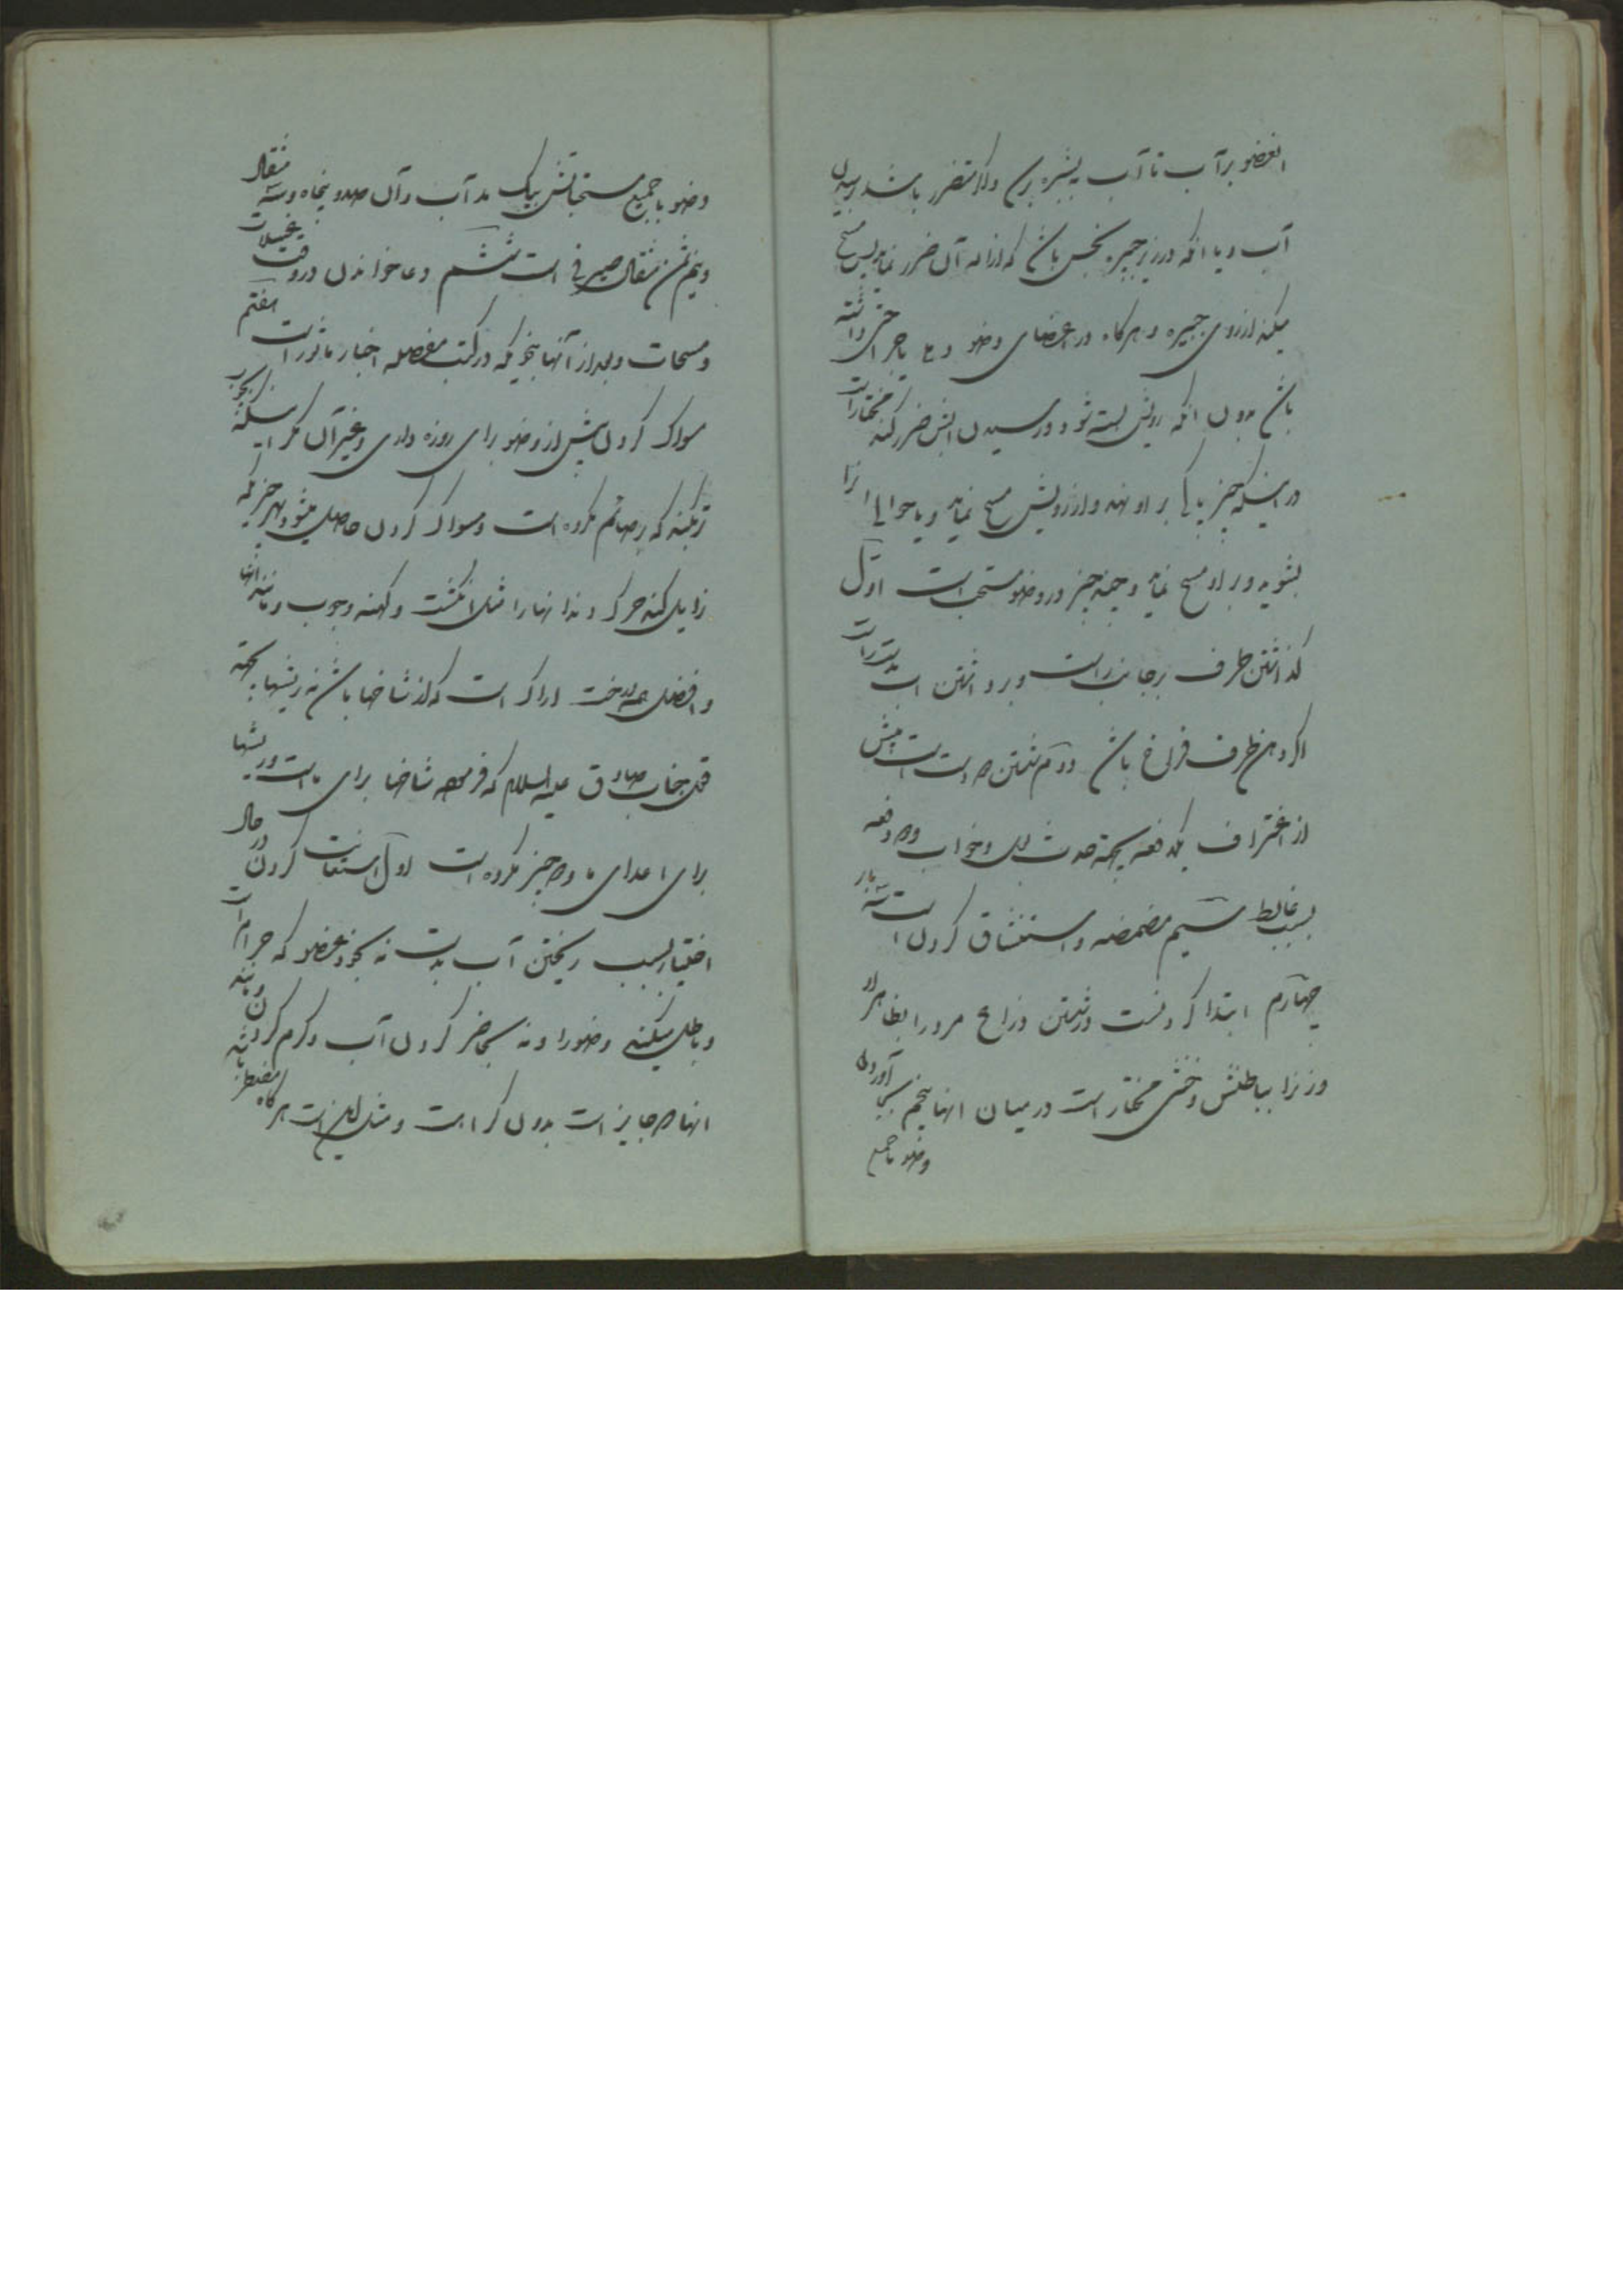 العضو بر آب تا آب ببشره برسد و الا متضرر باشد رسیدن
آب و یا انکه در زیر جبیره نجس باشد که ازاله آن ضرر نماید پس مسح
میکند از روی جبیره و هرکاه در اعضای وضو دمل یا جراحتی داشته
باشد بدون انکه رویش بسته شود و رسیدن آبش ضرر کند مختار است
در اینکه چیز پاکی بر او نهد و از رویش مسح نماید و یا حوالی انرا
بشوید و بر او مسح نماید و چند چیز در وضو مستحب است اوّل
کذاشتن ظرف بر جانب راست و برداشتن اب بدست راست
اکر دهن ظرف فراخ باشد دوّم شستن دست است پیش
از اغتراف یکدفعه بجهة حدث بول و خواب و دو دفعه
بسبب غایط سیّم مضمضه و استنشاق کردن است سه بار
چهارم ابتدا کردنست در شستن ذراع مرد را بظاهر او
و زنرا بباطنش و خنثی مختار است در میان انها پنجم بجا آوردن
وضو با جمیع
وضو با جمیع مستحباتش بیک مد آب و آن صد و پنجاه و سه مثقال
و نیم ثمن مثقال صیرفی است ششم دعا خواندن در وقت غسلات
و مسحات و بعد از آنها بنحویکه در کتب مفصله اخبار ماثور است هفتم
سواک کردن پیش از وضو برای روزه داری و غیر آن مکر اینکه بچوب
تر بکند که بر صائم مکروه است و مسواک کردن حاصل میشود بهر چیزیکه
زایل کند چرک دندانها را مثل انکشت و کهنه و چوب و مانند انها
و افضل همه درخت اراک است که از شاخها باشد نه ریشها بجهة
قول جناب صادق علیه السلام که فرموده شاخها برای ماست و ریشها
برای اعدای ما و دو چیز مکروه است اوّل استعانت کردن در حال
اختیار بسبب ریختن آب بدست نه بخود عضو که حرام است
و باطل میکند وضو را و نه بحاضر کردن آب و کرم کردن و مانند
انها که جایز است بدون کراهت و مثل این است هرکاه مضطر باشد